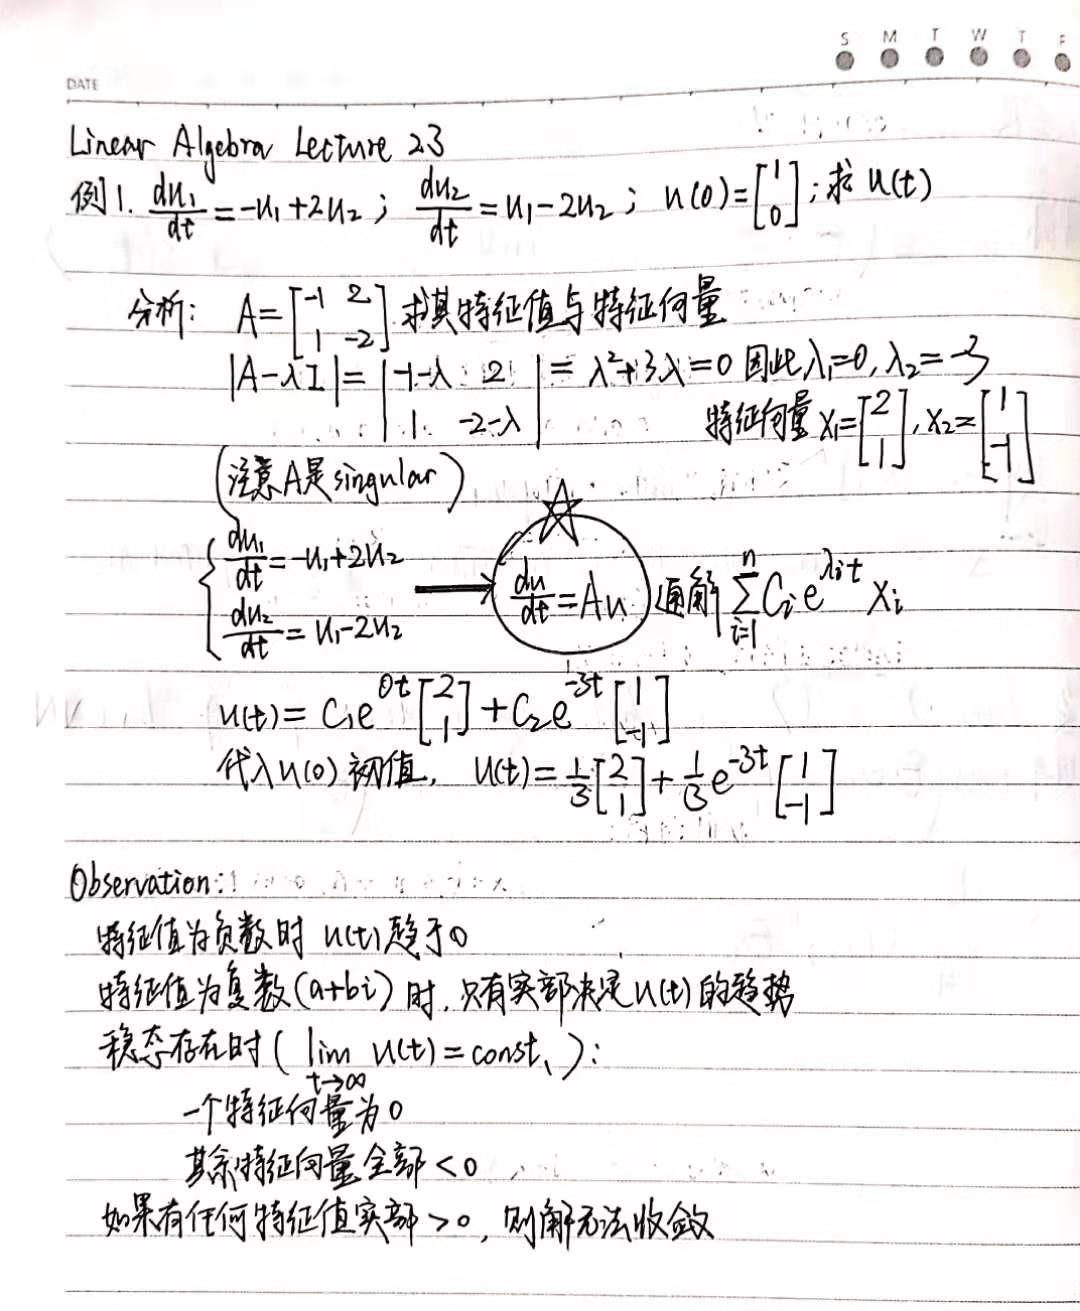 S M T W T F
DATE
Linear Algebra Lecture 23
例1. du₁/dt = -u₁+2u₂; du₂/dt = u₁-2u₂; u(0)=[1 0]; 求 u(t)
分析: A=[-1 2 1 -2] 求其特征值与特征向量
|A-λI|=|-1-λ 2 1 -2-λ|=λ²+3λ=0 因此λ₁=0,λ₂=-3
特征向量 x₁=[2 1], x₂=[1 -1]
(注意A是singular)
{du₁/dt=-u₁+2u₂
du₂/dt=u₁-2u₂
→ du/dt=Au 通解 ∑ⁿᵢ₌₁ Cᵢ e^{λᵢt} xᵢ
u(t)=C₁e^{0t}[2 1]+C₂e^{-3t}[1 -1]
代入u(0)初值, u(t)=1/3[2 1]+1/3 e^{-3t}[1 -1]
Observation:
特征值为负数时 u(t)趋于0
特征值为复数(a+bi)时,只有实部决定u(t)的趋势
稳态存在时(lim t→∞ u(t)=const,):
一个特征向量为0
其余特征向量全部<0
如果有任何特征值实部>0, 则解无法收敛